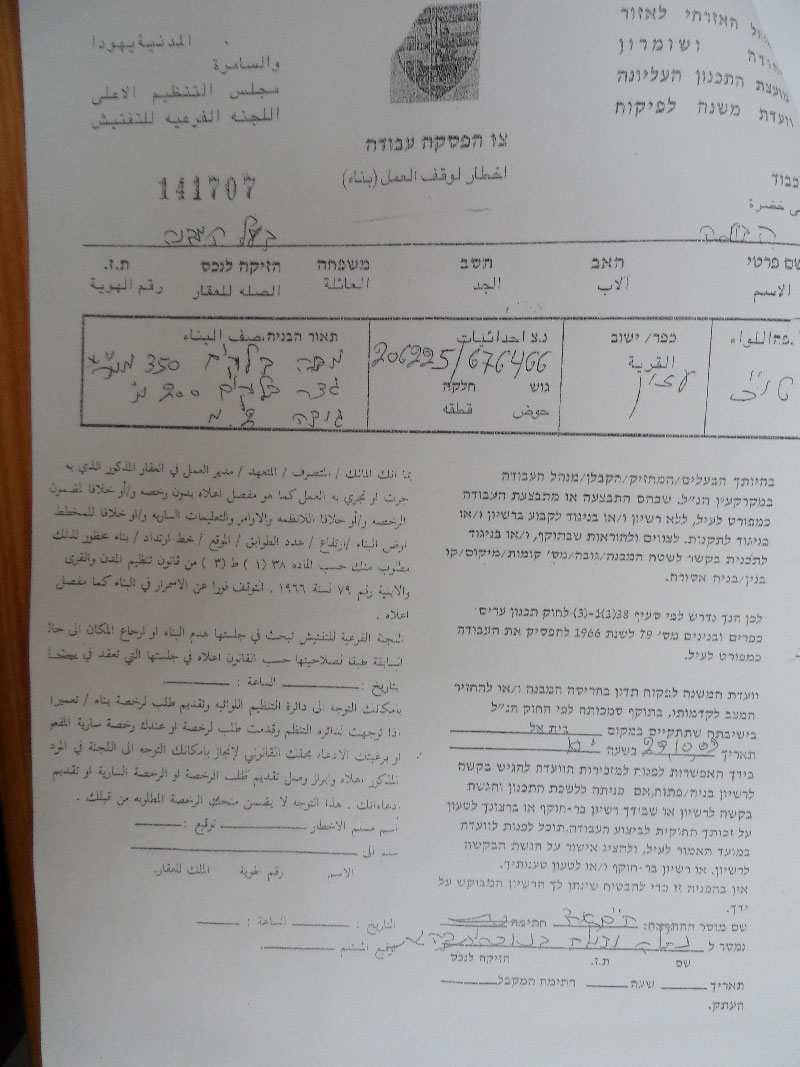 המדינה האזרחי לאזור
ושומרון
מועצת התכנון העליונה
וועדת משנה לפיקוח
المدنية يهودا
والسامرة
مجلس التنظيم الاعلى
اللجنه الفرعيه للتفتيش
צו הפסקה עבודה
اخطار لوقف العمل (بناء)
141707
שם פרטי האב הסב משפחה הזיקה לנכס ת.ז.
الاسم الاب الجد العائلة الصله للعقار رقم الهوية
כפר/ ישוב
القرية
עזון
נ.צ احداثيات
206225/676466
גוש חלקה
حوض قطعه
תאור הבניה.صف البناء
350
200
גובה 2 מ
בהיותך הבעלים/המחזיק/הקבלן/מנהל העבודה
במקרקעין הנ"ל. שבהם התבצעה או מתבצעת העבודה
כמפורט לעיל, ללא רשיון ו/או בניגוד לקבוע ברשיון ו/או
בניגוד לתקנות. לצווים ולהוראות שבתוקף, ו/או בניגוד
לתכנית בקשר לשטח המבנה/גובה/מס' קומות/מיקום/קו
בנין/בניה אסורה.
לכן הנך נדרש לפי סעיף 38(1)-(3) לחוק תכנון ערים
כפרים ובנינים מס' 79 לשנת 1966 להפסיק את העבודה
כמפורט לעיל.
וועדת המשנה לפקוח תדון בהריסת המבנה ו/או להחזיר
המצב לקדמותו, בתוקף סמכותה לפי החוק הנ"ל
בישיבתה שתתקיים במקום בית אל
תאריך 29/10/09 בשעה
בידך האפשרות לפנות למזכירות הוועדה להגיש בקשה
לרשיון בניה/פתוח,אם פניתה ללשכת התכנון והגשת
בקשה לרשיון או שבידך רשיון בר-תוקף או ברצונך לטעון
על זכותך החוקית לביצוע העבודה,תוכל לפנות לוועדה
במועד האמור לעיל, ולהציג אישור על הגשת הבקשה
לרשיון. או רשיון בר-תוקף ו/או לטעון טענותיך.
אין בהפניה זו כדי להבטיח שינתן לך הרשיון המבוקש על
ידך.
שם מוסר ההתראה: חתימה
נמסר ל
שם ת.ז. הזיקה לנכס
תאריך שעה חתימת המקבל
העתק.
بما انك المالك / المتصرف / المتعهد / مدير العمل في العقار المذكور الذي به
جرت او تجري به العمل كما هو مفصل اعلاه بدون رخصه و/أو خلافا لمضمون
الرخصه و/أو خلافا للانظمه والاوامر والتعليمات الساريه و/او خلافا للمخطط
ارض البناء /ارتفاع / عدد الطوابق / الموقع / خط ارتداد / بناء محظور لذلك
مطلوب منك حسب الماده ٣٨ (١) ط (٣) من قانون تنظيم المدن والقرى
والابنية رقم ٧٩ لسنة ١٩٦٦ . التوقف فورا عن الاسمرار في البناء كما مفصل
اعلاه .
اللجنة الفرعية للتفتيش تبحث في جلستها هدم البناء او ارجاع المكان الى حاله
السابقة طبقا لصلاحيتها حسب القانون اعلاه في جلستها التي تعقد في
بتاريخ : الساعة :
بامكانك التوجه الى دائرة التنظيم اللوائيه وتقديم طلب لرخصة بناء / تعميرا
اذا توجهت لدائره التنظم وقدمت طلب لرخصة او عندك رخصة سارية المفعو
او برغبتك الادعاء بحقك القانوني لإنجاز بامكانك التوجه الى اللجنة في المود
المذكور اعلاه وابراز وصل تقديم طلب الرخصة او الرخصة السارية او تقديم
ادعاءاتك . هذا التوجه لا يضمن منحك الرخصة المطلوبه من قبلك .
اسم مسلم الاخطار توقيع :
سلم الى
الاسم رقم الهوية الملك للعقار.
التاريخ : الساعة :
توقيع المستلم